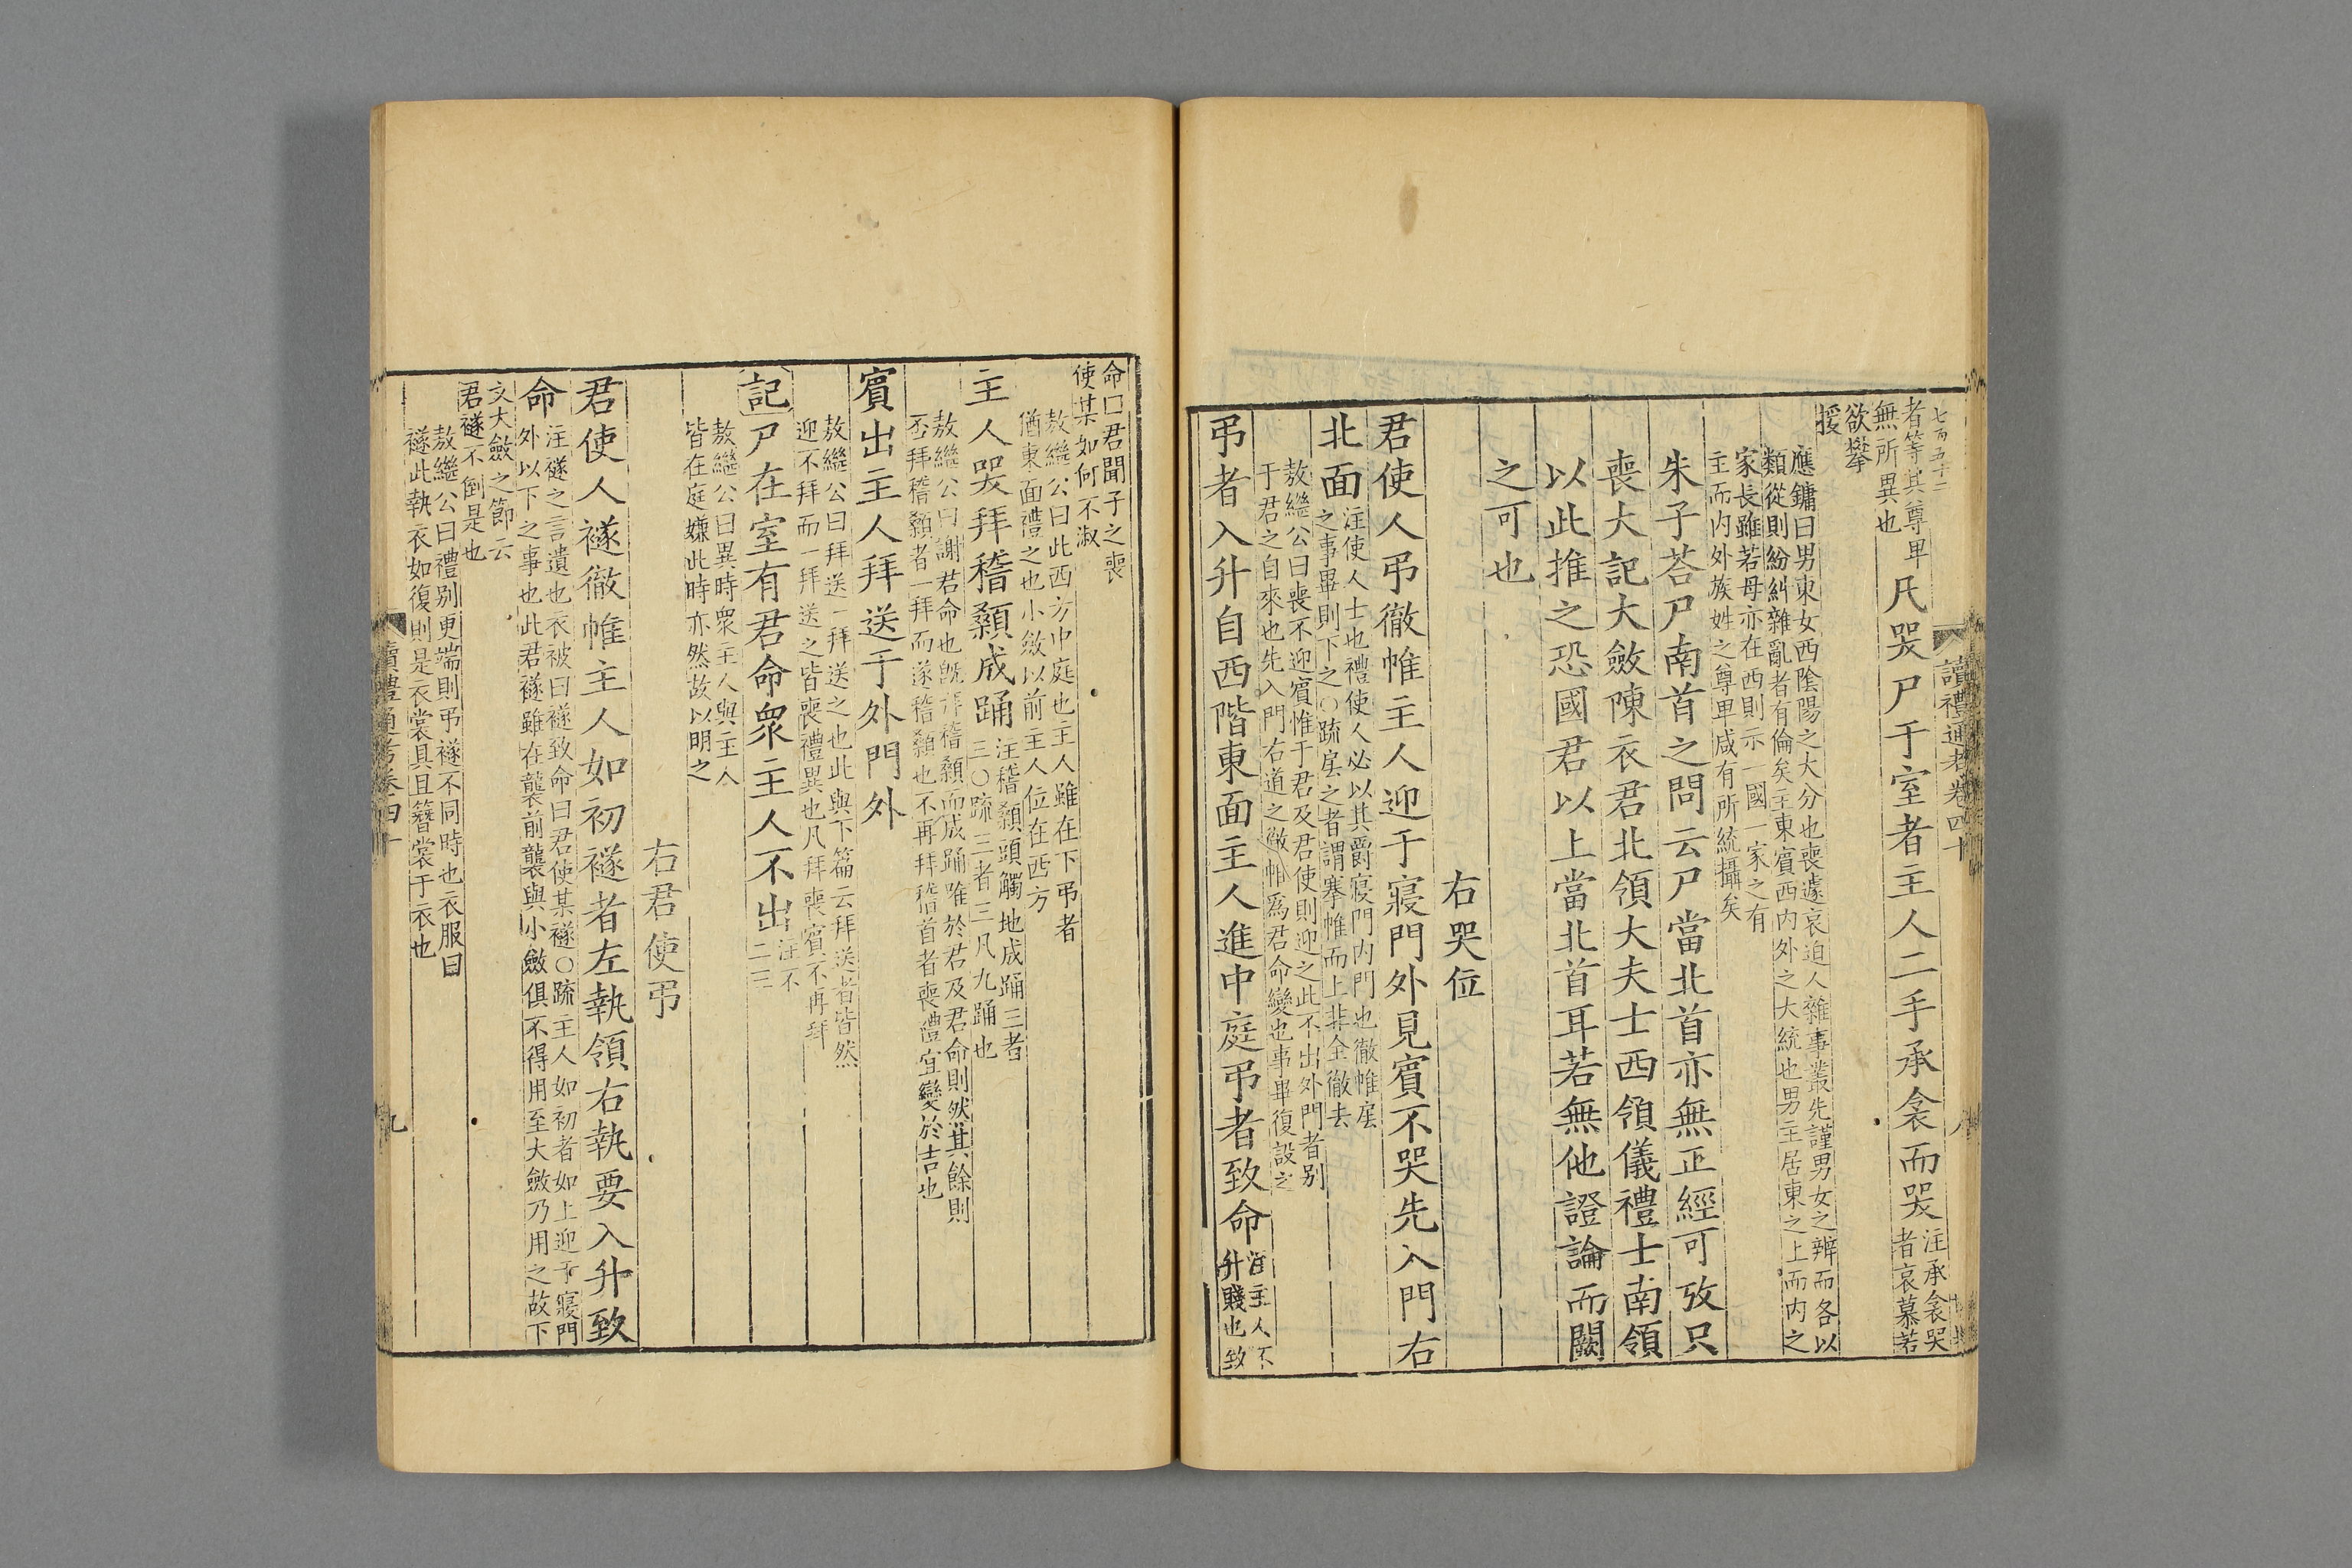 七百五十二
讀禮通考卷四十
八
者等其尊卑
無所異也
凡哭尸于室者主人二手承衾而哭
注承衾哭
者哀慕若
欲攀
援
應鏞曰男東女西陰陽之大分也喪遽哀迫人雜事叢先謹男女之辨而各以
類從則紛糾雜亂者有倫矣主東賓西内外之大統也男主居東之上而内之
家長雖若母亦在西則示一國一家之有
主而内外族姓之尊卑咸有所統攝矣
朱子荅尸南首之問云尸當北首亦無正經可攷只
喪大記大斂陳衣君北領大夫士西領儀禮士南領
以此推之恐國君以上當北首耳若無他證論而闕
之可也
右哭位
君使人弔徹帷主人迎于寢門外見賓不哭先入門右
北面
注使人士也禮使人必以其爵寢門内門也徹帷㞐
之事畢則下之○疏㞐之者謂褰帷而上非全徹去
敖繼公曰喪不迎賓惟于君及君使則迎之此不出外門者别
于君之自來也先入門右道之徹帷爲君命變也事畢復設之
弔者入升自西階東面主人進中庭弔者致命
注主人不
升賤也致
命曰君聞子之喪
使某如何不淑
敖繼公曰此西方中庭也主人雖在下弔者
猶東面禮之也小斂以前主人位在西方
主人哭拜稽顙成踊
注稽顙頭觸地成踊三者
三○疏三者三凡九踊也
敖繼公曰謝君命也旣拜稽顙而成踊唯於君及君命則然其餘則
否拜稽顙者一拜而遂稽顙也不再拜稽首者喪禮宜變於吉也
賓出主人拜送于外門外
敖繼公曰拜送一拜送之也此與下篇云拜送者皆然
迎不拜而一拜送之皆喪禮異也凡拜喪賓不再拜
記尸在室有君命衆主人不出
注不
二主
敖繼公曰異時衆主人與主人
皆在庭嫌此時亦然故以明之
右君使弔
君使人襚徹帷主人如初襚者左執領右執要入升致
命
注襚之言遺也衣被曰襚致命曰君使某襚○疏主人如初者如上迎于寢門
外以下之事也此君襚雖在襲前襲與小斂俱不得用至大斂乃用之故下
文大斂之節云
君襚不倒是也
敖繼公曰禮别更端則弔襚不同時也衣服曰
襚此執衣如復則是衣裳具且簪裳于衣也
讀禮通考卷四十
九